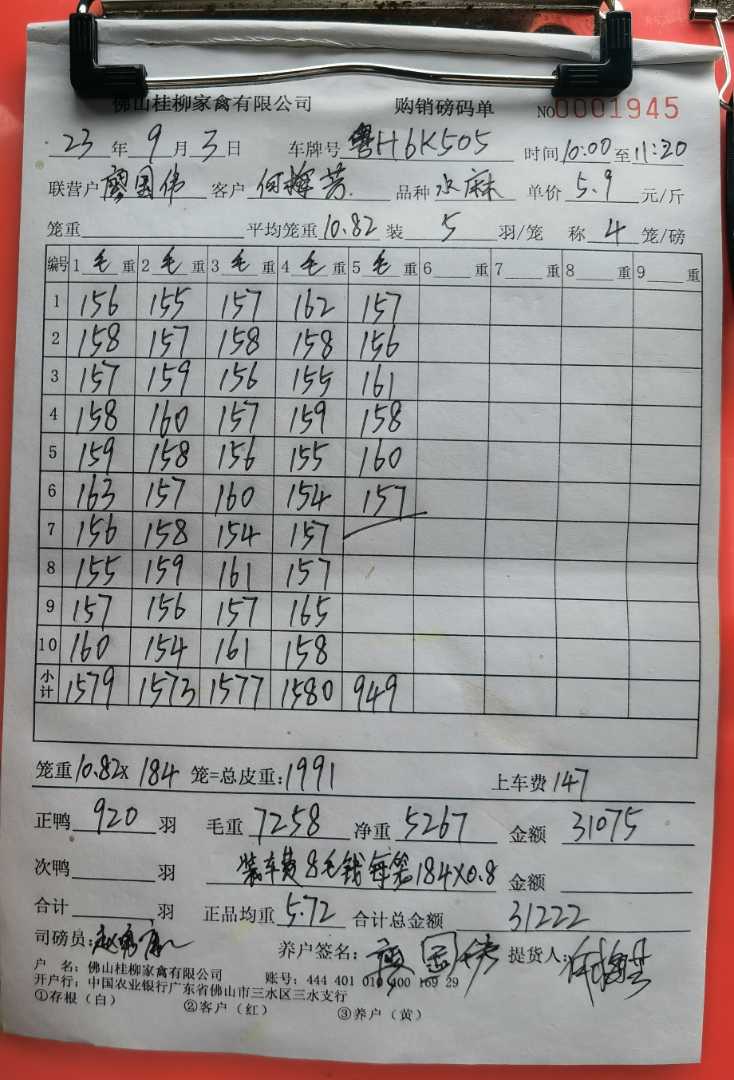 佛山桂柳家禽有限公司 购销磅码单 NO 0001945
23 年 9 月 3 日 车牌号 粤H6K505 时间 10:00 至 11:20
联营户 廖国伟 客户 何辉芳 品种 水麻 单价 5.9 元/斤
笼重 平均笼重 10.82 装 5 羽/笼 称 4 笼/磅
编号 1 毛 重 2 毛 重 3 毛 重 4 毛 重 5 毛 重 6 重 7 重 8 重 9 重
1 156 155 157 162 157
2 158 157 158 158 156
3 157 159 156 155 161
4 158 160 157 159 158
5 159 158 156 155 160
6 163 157 160 154 157
7 156 158 154 157
8 155 159 161 157
9 157 156 157 165
10 160 154 161 158
小计 1579 1573 1577 1580 949
笼重 10.82x 184 笼=总皮重: 1991 上车费 147
正鸭 920 羽 毛重 7258 净重 5267 金额 31075
次鸭 羽 装车费8毛钱每笼184X0.8 金额
合计 羽 正品均重 5.72 合计总金额 31222
司磅员: 养户签名: 廖国伟 提货人:
户 名: 佛山桂柳家禽有限公司 账号: 444 401 010 400 169 29
开户行: 中国农业银行广东省佛山市三水区三水支行
①存根（白） ②客户（红） ③养户（黄）